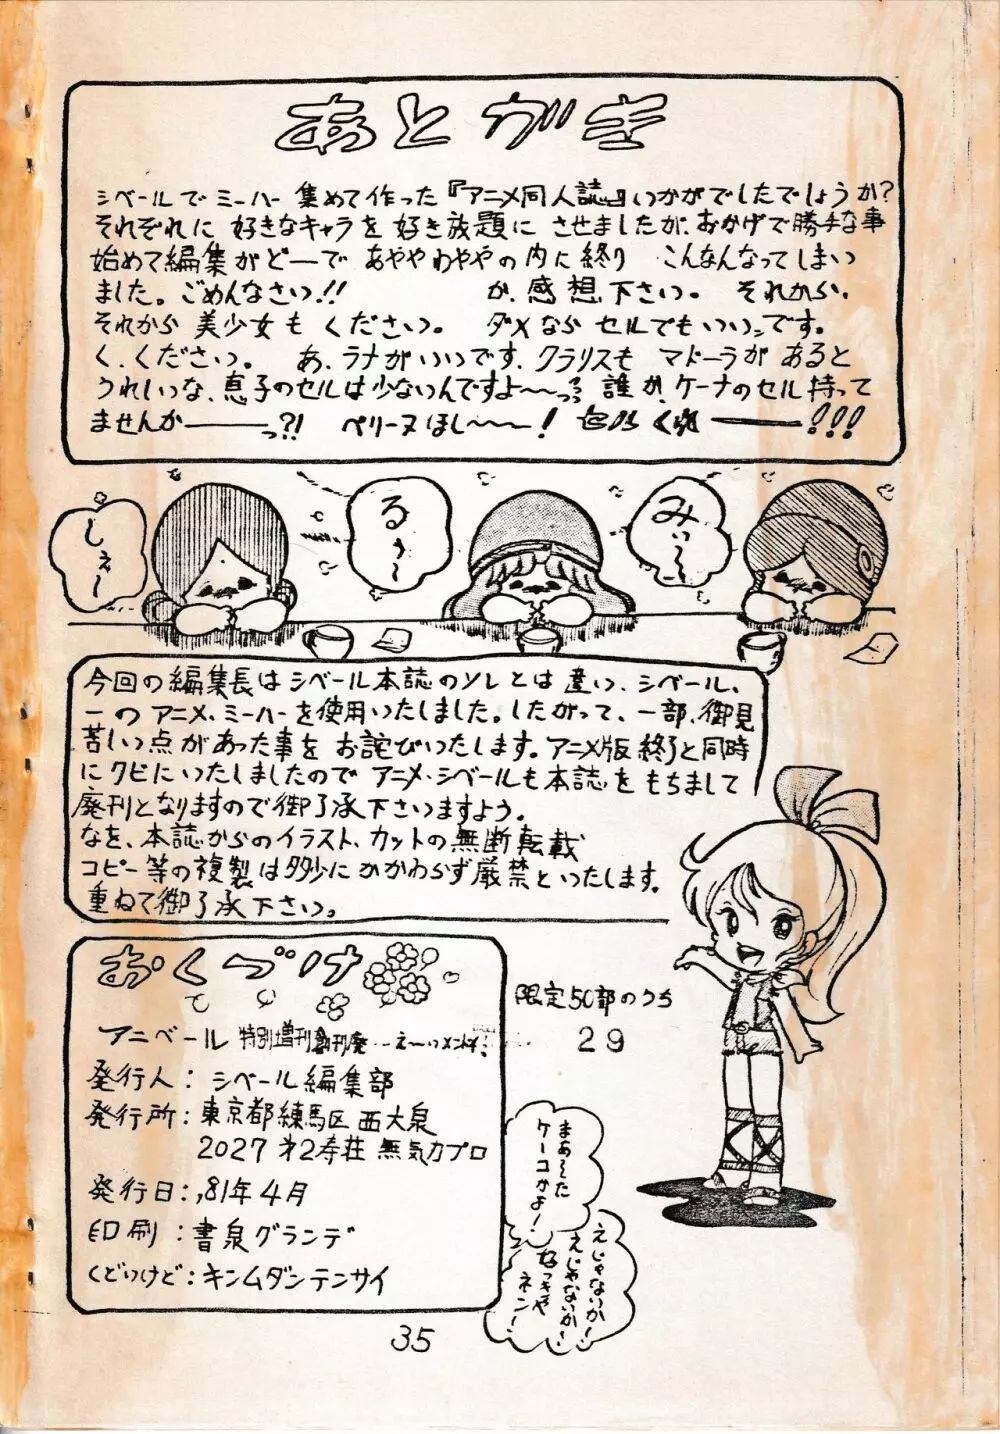 あとがき
シベールでミーハー集めて作った『アニメ同人誌』いかがでしたでしょうか?
それぞれに好きなキャラを好き放題にさせましたが、おかげで勝手な事
始めて編集がどーで あややわややの内に終り こんなんなってしまい
ました。ごめんなさい!! が、感想下さい。 それから、
それから美少女もください。 ダメならセルでもいいンです。
く、ください。 あ、ラナがいいです、クラリスも マドーラがあると
うれしいな、恵子のセルは少ないんですよ〜〜っ 誰か、ケーナのセル持って
ませんかーーーっ?! ペリーヌほし〜〜〜! セルくれーーー!!!
しぇ〜
るぅ〜
みぃ〜
今回の編集長はシベール本誌のソレとは違い、シベール、
一のアニメ・ミーハーを使用いたしました。したがって、一部、御見
苦しい点があった事をお詫びいたします。アニメ版終了と同時
にクビにいたしましたのでアニメ・シベールも本誌をもちまして
廃刊となりますので御了承下さいますよう。
なを、本誌からのイラスト、カットの無断転載
コピー等の複製は多少にかかわらず厳禁といたします。
重ねて御了承下さい。
おくづけ
アニベール 特別増刊創刊廃…えーいメンドイ!
発行人:シベール編集部
発行所:東京都練馬区西大泉
2027 才2寿荘 無気力プロ
発行日:,81年4月
印刷:書泉グランデ
くどいけど:キンムダンテンサイ
限定50部のうち
29
まぁ〜た
ケーコかよ!
えじゃないか!
えじゃないか!
なっきゃ
ネン!
35